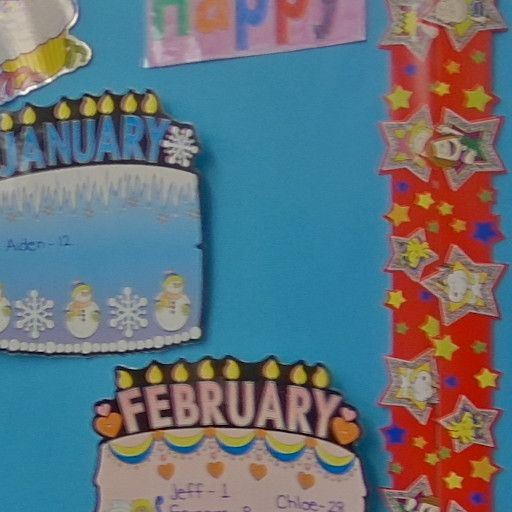 Happy
JANUARY
Aiden-12
FEBRUARY
Jeff-1
Chloe-28